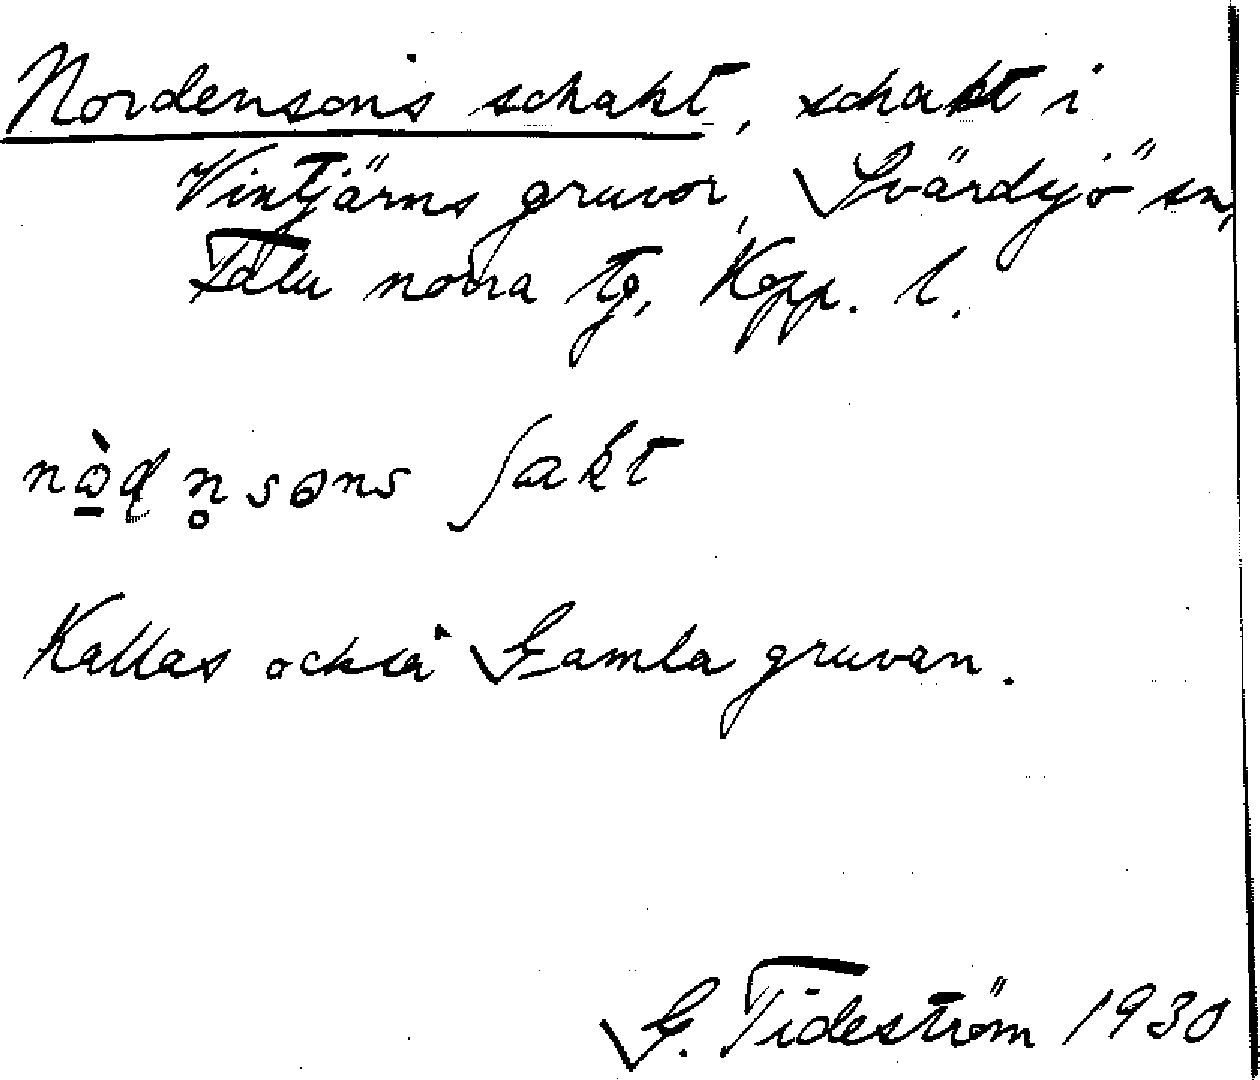 Nordensons schakt, schakt i
Vintjärns gruvor, Svärdsjö sn,
Falu norra tg, Kopp. l.
ʃakt
Kallas också Gamla gruvan.
G. Tideström 1930